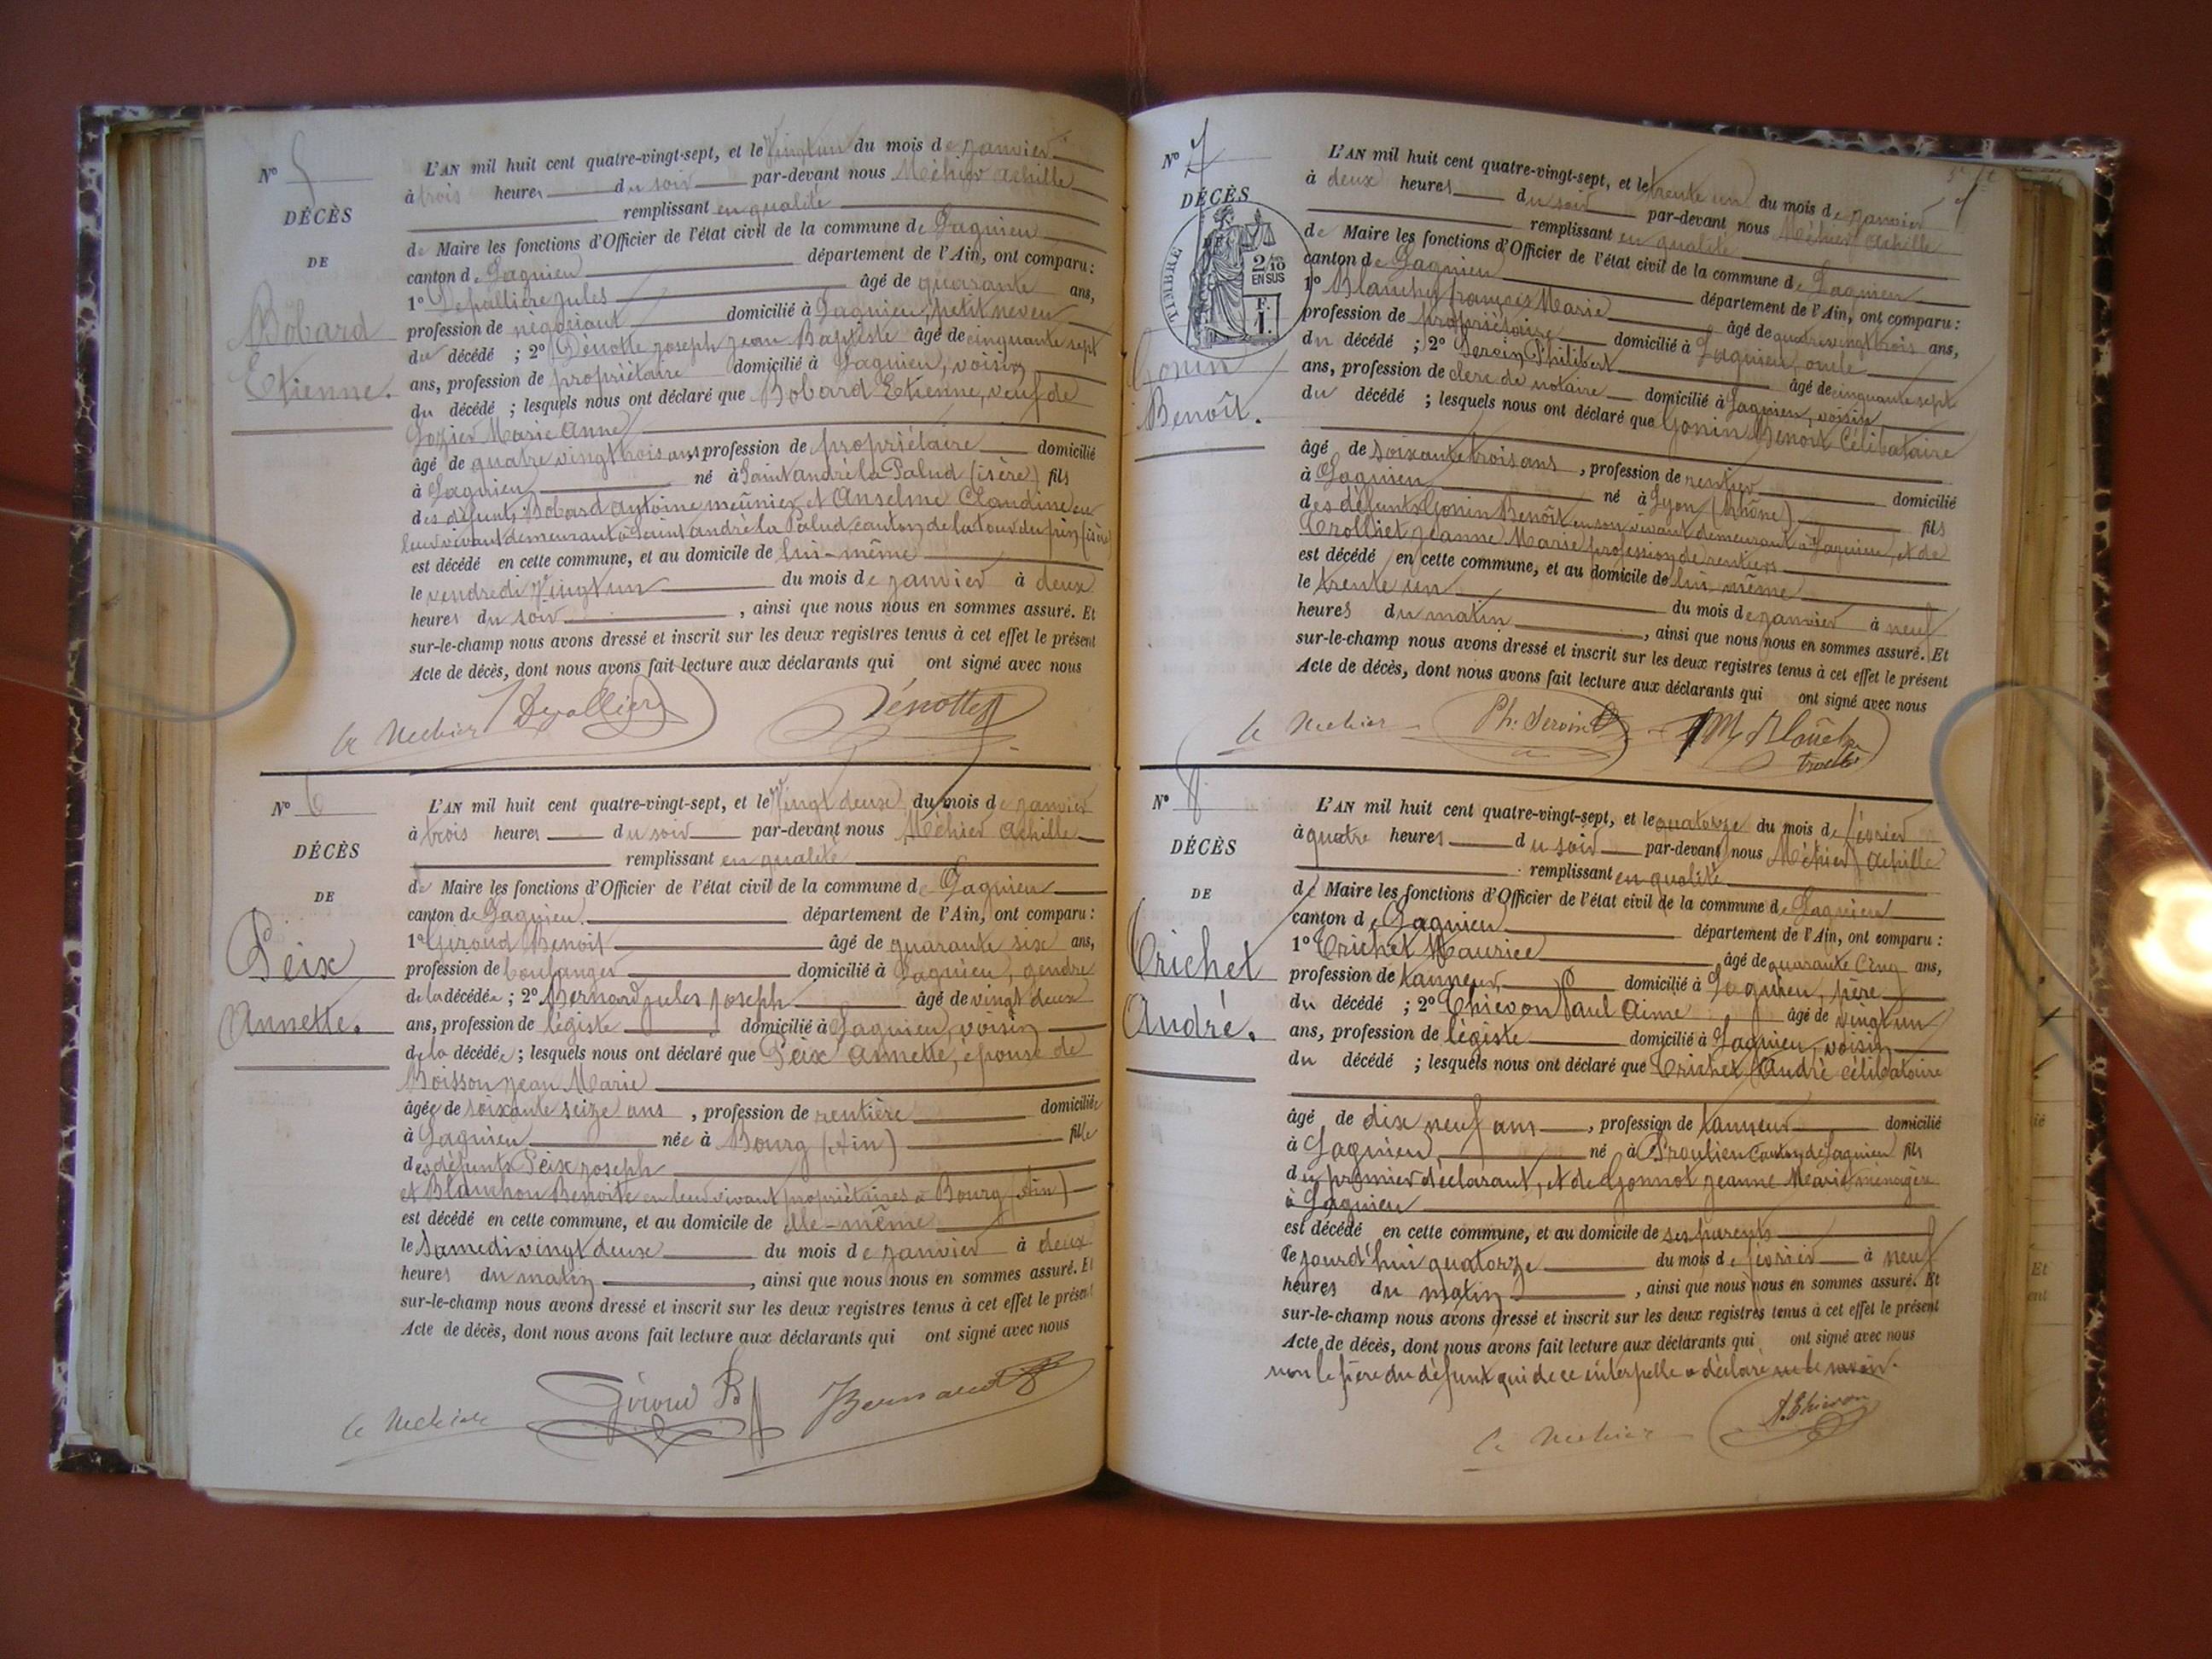 N° 5
DÉCÈS
DE
Bobard
Etienne.
L'AN mil huit cent quatre-vingt-sept, et le Vingt un du mois de janvier
à trois heures du soir par-devant nous Méhier Achille
remplissant en qualité
de Maire les fonctions d'Officier de l'état civil de la commune de Lagnieu
canton de Lagnieu département de l'Ain, ont comparu :
1° Depallière Jules âgé de quarante ans,
profession de négociant domicilié à Lagnieu, petit neveu
du décédé ; 2° Dénotte Joseph Jean Baptiste âgé de cinquante sept
ans, profession de propriétaire domicilié à Lagnieu, voisin
du décédé ; lesquels nous ont déclaré que Bobard Etienne, veuf de
Lozier Marie Anne
âgé de quatre vingt trois ans profession de propriétaire domicilié
à Lagnieu né à Saint andré la Palud (isère) fils
des défunts Bobard Antoine meûnier et Anselme Claudine en
leur vivant demeurant à Saint andré la Palud canton de la tour du pin (isère)
est décédé en cette commune, et au domicile de lui-même
le vendredi Vingt un du mois de janvier à deux
heures du soir, ainsi que nous nous en sommes assuré. Et
sur-le-champ nous avons dressé et inscrit sur les deux registres tenus à cet effet le présent
Acte de décès, dont nous avons fait lecture aux déclarants qui ont signé avec nous
Depallière Dénotte
N° 6
DÉCÈS
DE
Peix
Annette.
L'AN mil huit cent quatre-vingt-sept, et le Vingt deux du mois de janvier
à trois heures du soir par-devant nous Méhier Achille
remplissant en qualité
de Maire les fonctions d'Officier de l'état civil de la commune de Lagnieu
canton de Lagnieu département de l'Ain, ont comparu :
1° Giroud Benoit âgé de quarante six ans,
profession de boulanger domicilié à Lagnieu, gendre
de la décédée ; 2° Bernard jules joseph âgé de vingt deux
ans, profession de légiste domicilié à Lagnieu, voisin
de la décédée ; lesquels nous ont déclaré que Peix Annette, épouse de
Boisson Jean Marie
âgée de soixante seize ans, profession de rentière domiciliée
à Lagnieu née à Bourg (Ain) fille
des défunts Peix joseph
et Blanchon Benoite en leur vivant propriétaires à Bourg (Ain)
est décédé en cette commune, et au domicile de elle-même
le Samedi vingt deux du mois de janvier à deux
heures du matin, ainsi que nous nous en sommes assuré. Et
sur-le-champ nous avons dressé et inscrit sur les deux registres tenus à cet effet le présent
Acte de décès, dont nous avons fait lecture aux déclarants qui ont signé avec nous
Giroud B JBernard
N° 7
DÉCÈS
DE
TIMBRE
2/10
EN SUS
F.
1.
Gonin
Benoît.
L'AN mil huit cent quatre-vingt-sept, et le trente un du mois de janvier
à deux heures du soir par-devant nous Méhier Achille
remplissant en qualité
de Maire les fonctions d'Officier de l'état civil de la commune de Lagnieu
canton de Lagnieu département de l'Ain, ont comparu :
1° Blanchet françois Marie âgé de quatre vingt trois ans,
profession de propriétaire domicilié à Lagnieu, oncle
du décédé ; 2° Seroin Philibert âgé de cinquante sept
ans, profession de clerc de notaire domicilié à Lagnieu, voisin
du décédé ; lesquels nous ont déclaré que Gonin Benoit Célibataire
âgé de soixante trois ans, profession de rentier domicilié
à Lagnieu né à Lyon (Rhône) fils
des défunts Gonin Benoît en son vivant demeurant à Lagnieu, et de
Trolliet Jeanne Marie profession de rentiers
est décédé en cette commune, et au domicile de lui-même
le trente un du mois de janvier à neuf
heures du matin, ainsi que nous nous en sommes assuré. Et
sur-le-champ nous avons dressé et inscrit sur les deux registres tenus à cet effet le présent
Acte de décès, dont nous avons fait lecture aux déclarants qui ont signé avec nous
Ph. Seroin
N° 8
DÉCÈS
DE
Crichet
André.
L'AN mil huit cent quatre-vingt-sept, et le quatorze du mois de février
à quatre heures du soir par-devant nous Méhier Achille
remplissant en qualité
de Maire les fonctions d'Officier de l'état civil de la commune de Lagnieu
canton de Lagnieu département de l'Ain, ont comparu :
1° Crichet Maurice âgé de quarante Cinq ans,
profession de tanneur domicilié à Lagnieu, père
du décédé ; 2° Thievon Paul Aimé âgé de vingt un
ans, profession de légiste domicilié à Lagnieu, voisin
du décédé ; lesquels nous ont déclaré que Crichet André célibataire
âgé de dix neuf ans, profession de tanneur domicilié
à Lagnieu, né à Proulieu Canton de Lagnieu fils
du premier déclarant, et de Gonnot Jeanne Marie ménagère
à Lagnieu
est décédé en cette commune, et au domicile de ses parents
le jourd'hui quatorze du mois de février à neuf
heures du matin, ainsi que nous nous en sommes assuré. Et
sur-le-champ nous avons dressé et inscrit sur les deux registres tenus à cet effet le présent
Acte de décès, dont nous avons fait lecture aux déclarants qui ont signé avec nous
non le père du défunt qui de ce interpellé a déclaré ne le savoir.